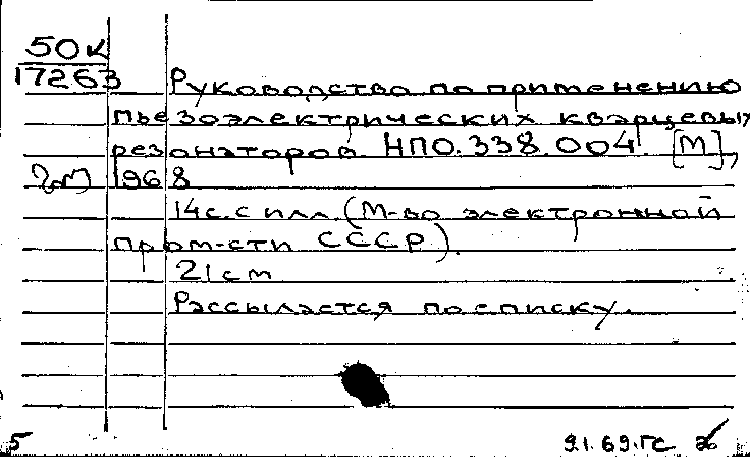 50к
17263
Руководство по применению
пьезоэлектрических кварцевых
резонаторов НПО.338.004 [М],
1968
14с. с илл. (М-во электронной
пром-сти СССР).
21см
Рассылается по списку.
5
9.1.69.ГС